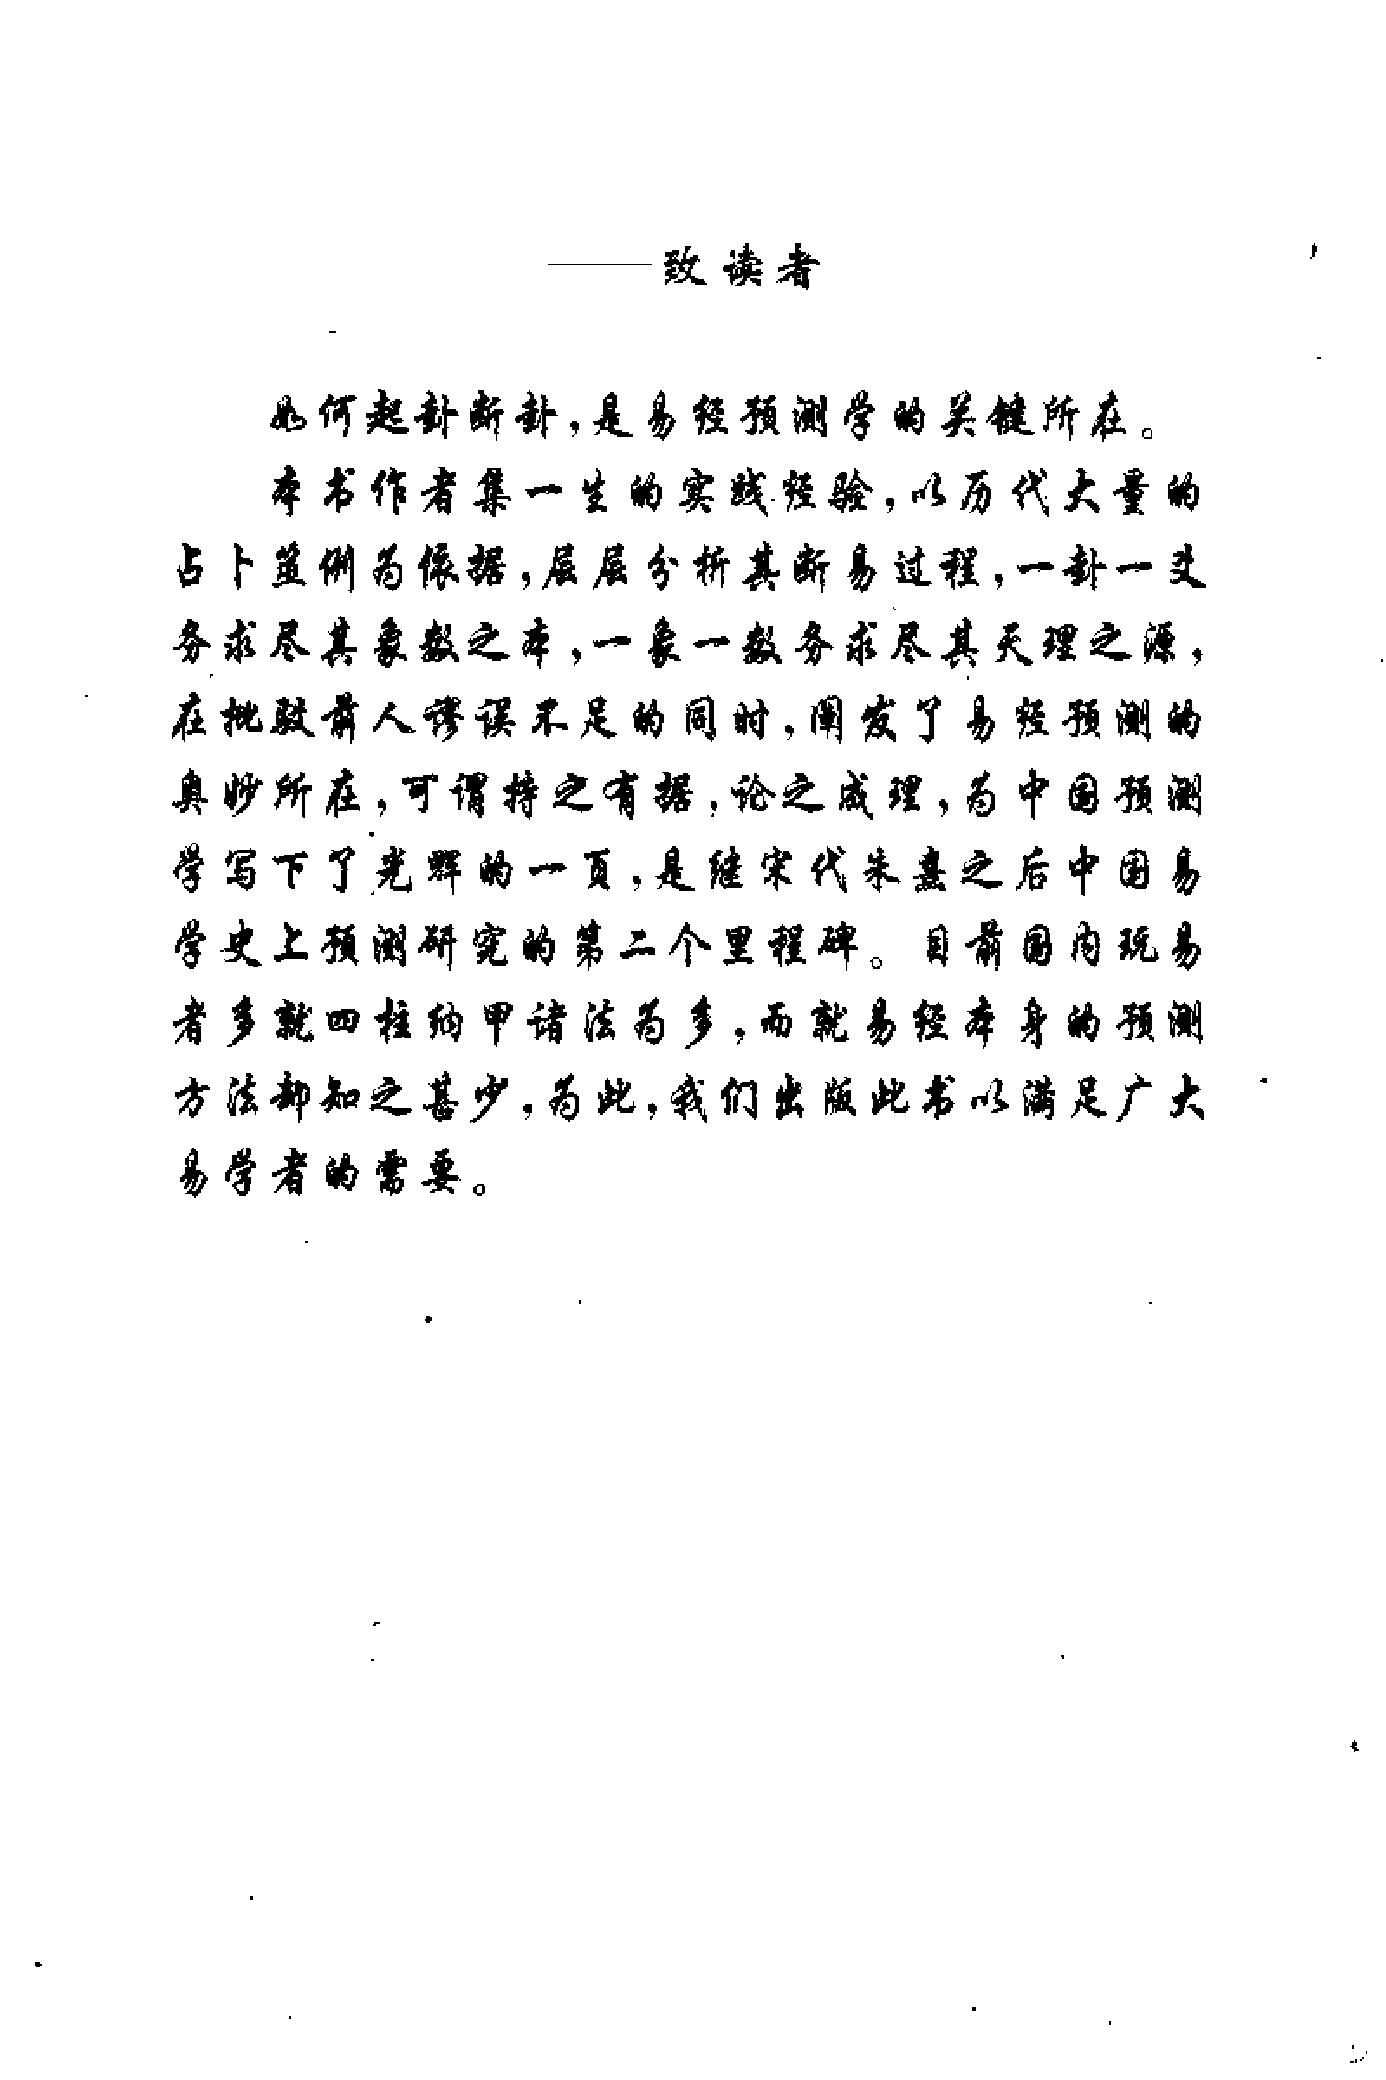 ——致读者
如何起卦断卦，是易经预测学的关键所在。
本书作者集一生的实践经验，以历代大量的
占卜筮例为依据，层层分析其断易过程，一卦一爻
务求尽其象数之本，一象一数务求尽其天理之源，
在批驳前人谬误不足的同时，阐发了易经预测的
奥妙所在，可谓持之有据，论之成理，为中国预测
学写下了光辉的一页，是继宋代朱熹之后中国易
学史上预测研究的第二个里程碑。目前国内玩易
者多就四柱纳甲诸法为多，而就易经本身的预测
方法却知之甚少，为此，我们出版此书以满足广大
易学者的需要。